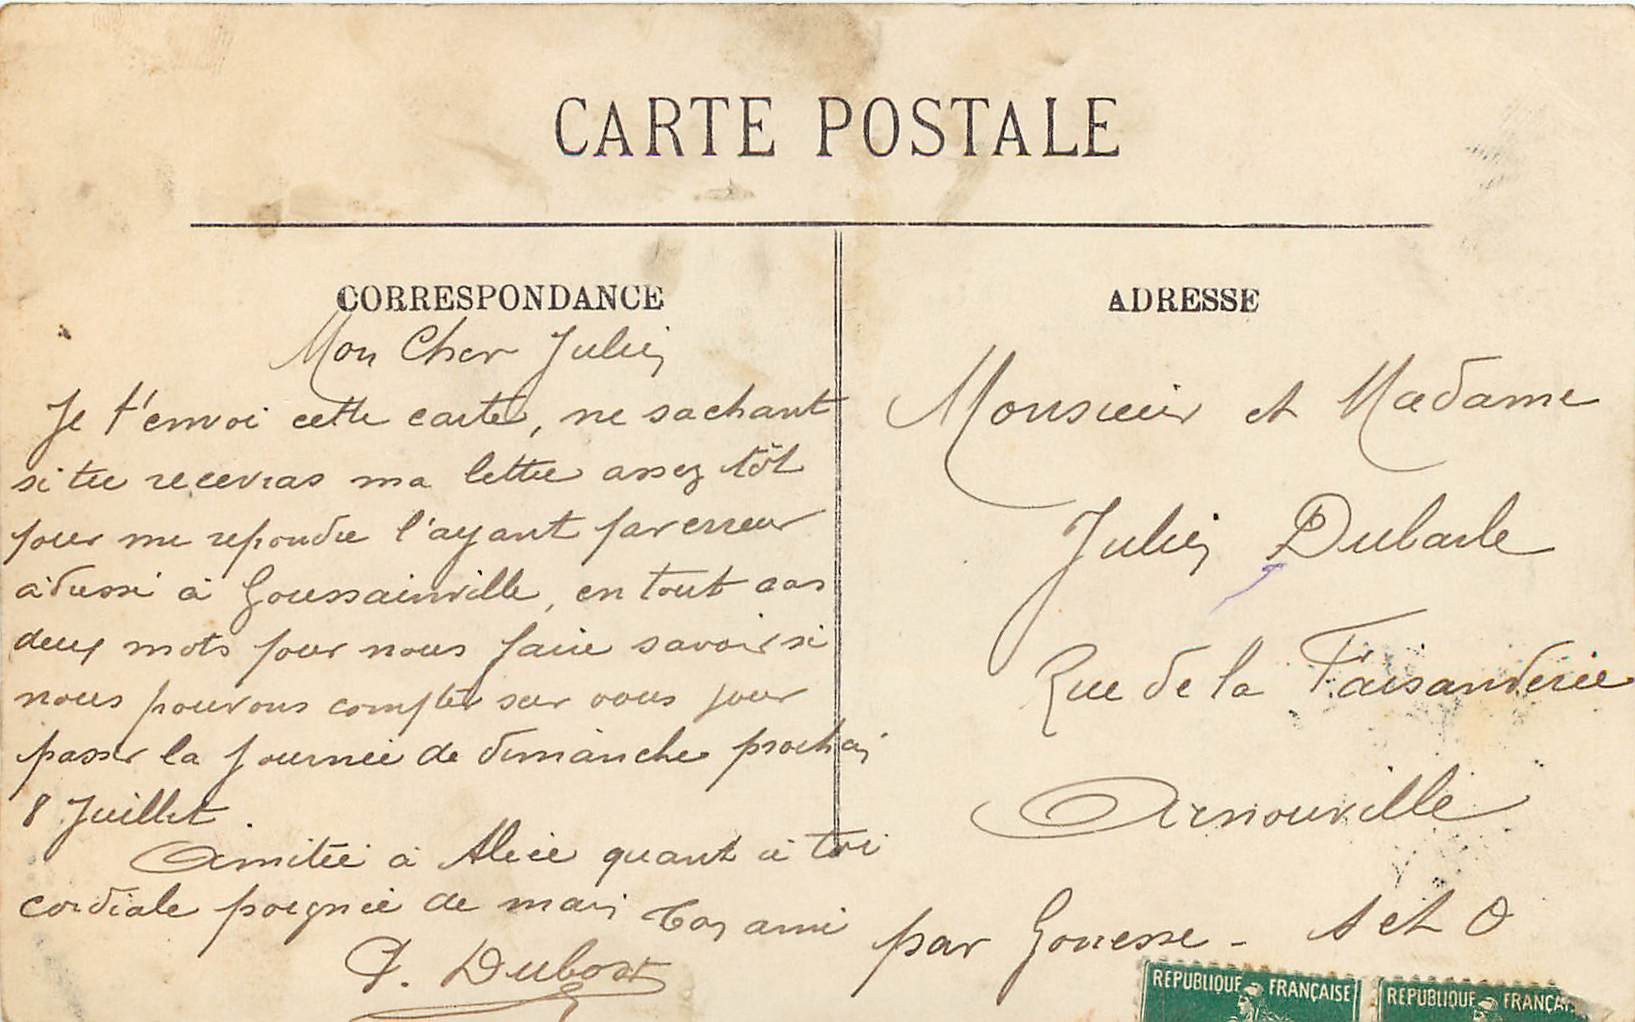 CARTE POSTALE
CORRESPONDANCE
Mon Cher Julien
Je t'envoi cette carte, ne sachant
si tu recevras ma lettre assez tôt
pour me repondre l'ayant par erreur
adressé à Goussainville, en tout cas
deux mots pour nous faire savoir si
nous pouvons compter sur vous pour
passer la journée de dimanche prochain
8 Juillet.
Amitié à Alice quant à toi
cordiale poignée de main Ton ami
P. Dubost
ADRESSE
Monsieur et Madame
Julien Dubarle
Rue de la Faisanderie
Arnouville
par Gonesse - S et O
REPUBLIQUE FRANÇAISE
REPUBLIQUE FRANÇA